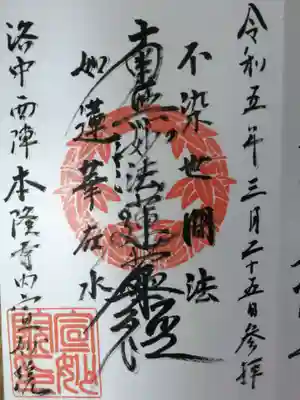 令和五年三月二十五日参拝
不染世間法
南無妙法蓮華経
如蓮華在水
洛中西陣本隆寺内宣妙院